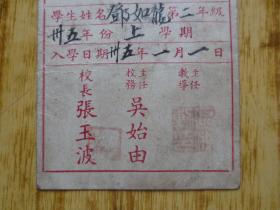 學生姓名鄧如龍第二年級
卅五年份上學期
入學日期卅五年一月一日
教導主任
校務主任吳始由
校長張玉波